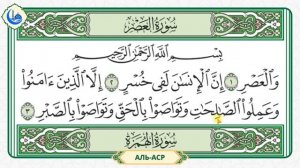 سُورَةُ العَصْرِ
بِسْمِ اللَّهِ الرَّحْمَٰنِ الرَّحِيمِ
وَالْعَصْرِ ١ إِنَّ الْإِنسَٰنَ لَفِى خُسْرٍ ٢ إِلَّا الَّذِينَ ءَامَنُوا۟
وَعَمِلُوا۟ الصَّٰلِحَٰتِ وَتَوَاصَوْا۟ بِالْحَقِّ وَتَوَاصَوْا۟ بِالصَّبْرِ ٣
سُورَةُ الهُمَزَةِ
АЛЬ-АСР